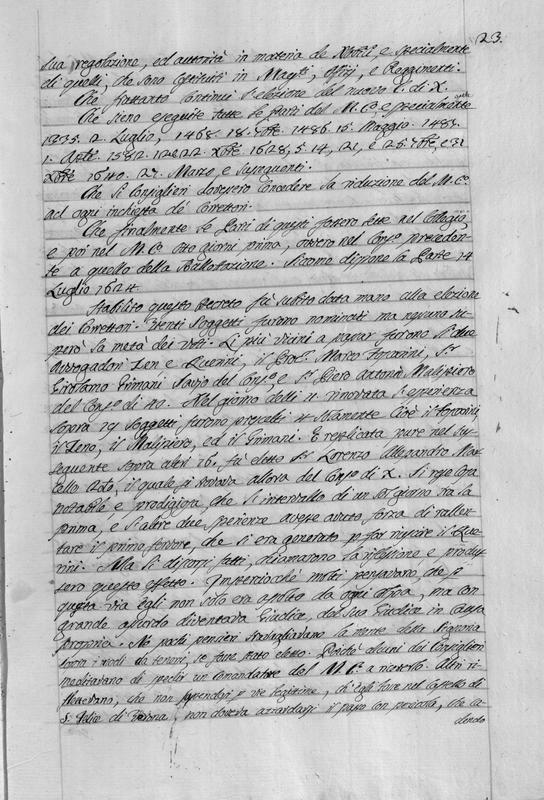 23.
sua regolazione, ed autorità in materia de Nobili, e specialmente
di quelli, che sono costituiti in Mag.ti, Offizj, e Reggimenti.
Che frattanto continui l'elezione del nuovo C. di X.
Che sieno eseguite tutte le parti del M. C. e specialmente
1335. 2. Luglio, 1468. 18. 7bre 1486. 15. Maggio. 1483.
1628, 5. 14, 21, e 25. 7bre, e 31
Xbre 1640. 27. Marzo, e susseguenti.
Che li Consiglieri dovessero concedere la riduzione del M. C.
ad ogni inchiesta de' Correttori.
Che finalmente le Parti di questi fossero lette nel Collegio,
e poi nel M. C. otto giorni prima, ovvero nel Cons.o preceden-
te a quello della Ballottazione. Siccome dispone la Parte 14
Luglio 1624
Stabilito questo Decreto fù subito data mano alla elezione
dei Correttori. Venti Soggetti furono nominati ma nessuno su-
però la metà dei Voti. Li più vicini a passar furono li due
Avvogadori Zen e Querini, il Proc.r Marco Foscarini, S.r
Girolamo Grimani Savio del Cons.o, e S.r Piero Antonio Malipiero
del Cons.o di 40. Nel giorno delli 11 rinovata l'esperienza
sopra 19 Soggetti furono prescelti Cioè il Foscarini,
il Zeno, il Malipiero, ed il Grimani. E replicata pure nel sus-
seguente sopra altri 16. fù eletto S.r Lorenzo Alessandro Mar-
cello il quale si trovava allora del Cons.o di X. Si rese cosa
notabile e prodigiosa, che l'intervallo di un sol giorno tra la
prima, e l'altre due sperienze avesse avuto forza di rallen-
tare il primo fervore, che si era generato p. far riuscire il Que-
rini. Ma li discorsi fatti, chiamarono la riflessione e produs-
sero questo effetto. Imperciocchè molti pensavano, che p.
questa via egli non solo era assolto da ogni colpa, ma con
grande assurdo diventava Giudice, dal suo Giudice in causa
propria. Nè pochi pensieri travagliavano la mente della Signoria
sopra i modi da tenersi, se fosse stato eletto. Perchè alcuni dei Consiglieri
meditavano di spedir un Comandatore del M. C. a riceverlo. Altri ri-
flettevano, che non sapendosi p. vie legitime, ch'egli fosse nel Castello di
S. Felice di Verona, non doveva azzardarsi il passo con pericolo, che ca-
dendo